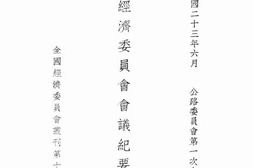 國二十三年六月
公路委員會第一次
經濟委員會會議紀要
全國經濟委員會叢刊第十